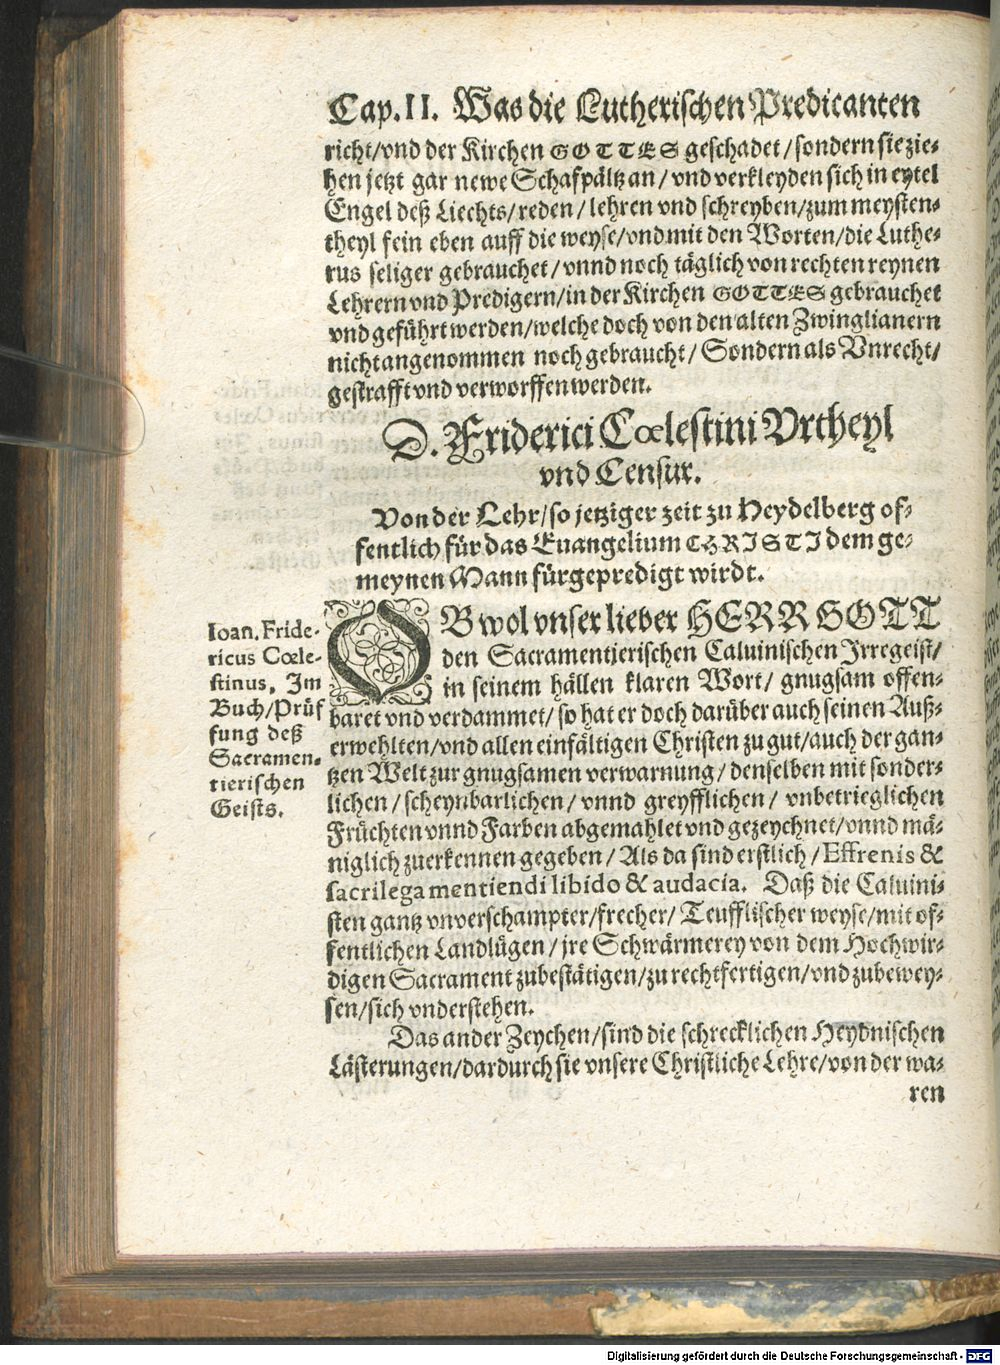 Cap. II. Was die Lutherischen Predicanten
richt/vnd der Kirchen GOTTES geschadet/sondern sie zie-
hen jetzt gar newe Schafpältz an/vnd verkleyden sich in eytel
Engel deß Liechts/reden/lehren vnd schreyben/zum meysten-
theyl fein eben auff die weyse/vnd mit den Worten/die Luthe-
rus seliger gebrauchet/vnnd noch täglich von rechten reynen
Lehrern vnd Predigern/in der Kirchen GOTTES gebrauchet
vnd geführt werden/welche doch von den alten Zwinglianern
nicht angenommen noch gebraucht/Sondern als Vnrecht/
gestrafft vnd verworffen werden.
D. Friderici Cœlestini Vrtheyl
vnd Censur.
Von der Lehr/so jetziger zeit zu Heydelberg of-
fentlich für das Euangelium CHRISTI dem ge-
meynen Mann fürgepredigt wirdt.
OB wol vnser lieber HERR GOTT
den Sacramentierischen Caluinischen Irregeist/
in seinem hällen klaren Wort/gnugsam offen-
baret vnd verdammet/so hat er doch darüber auch seinen Auß-
erwehlten/vnd allen einfältigen Christen zu gut/auch der gan-
tzen Welt zur gnugsamen verwarnung/denselben mit sonder-
lichen/scheynbarlichen/vnnd greyfflichen/vnbetrieglichen
Früchten vnnd Farben abgemahlet vnd gezeychnet/vnnd mä-
niglich zuerkennen gegeben/Als da sind erstlich/Effrenis &
sacrilega mentiendi libido & audacia. Daß die Caluini-
sten gantz vnverschampter/frecher/Teufflischer weyse/mit of-
fentlichen Landlügen/jre Schwärmerey von dem Hochwir-
digen Sacrament zubestätigen/zu rechtfertigen/vnd zubewey-
sen/sich vnderstehen.
Das ander Zeychen/sind die schrecklichen Heydnischen
Lästerungen/dardurch sie vnsere Christliche Lehre/von der wa-
ren
Ioan. Fride-
ricus Cœle-
stinus, Im
Buch/Prüf
fung deß
Sacramen-
tierischen
Geists.
Digitalisierung gefördert durch die Deutsche Forschungsgemeinschaft - DFG